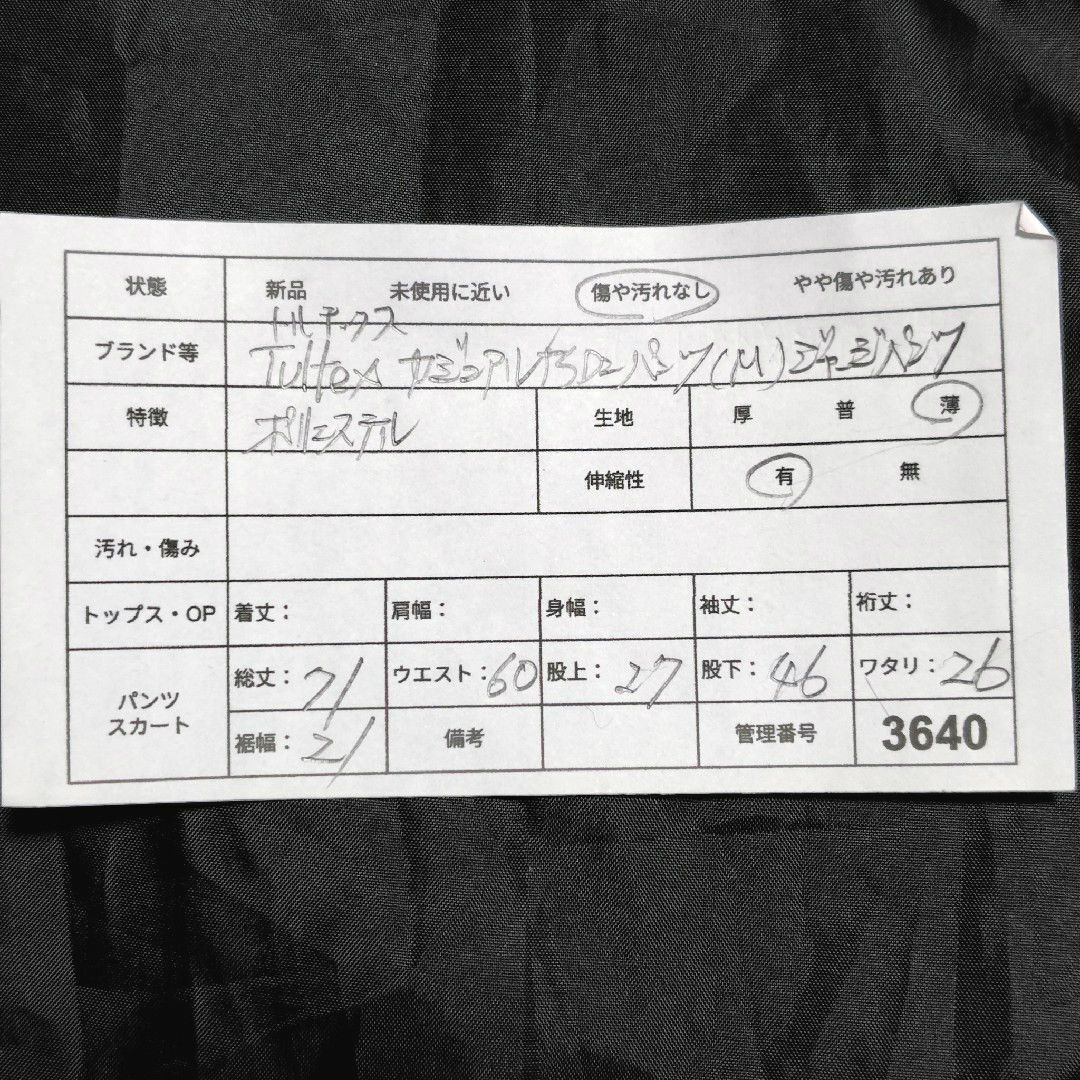 状態 新品 未使用に近い 傷や汚れなし やや傷や汚れあり
トルテックス
ブランド等 Tultex カジュアル パンツ(M)ジャージパンツ
特徴 ポリエステル 生地 厚 普 薄
伸縮性 有 無
汚れ・傷み
トップス・OP 着丈: 肩幅: 身幅: 袖丈: 裄丈:
パンツ スカート 総丈:71 ウエスト:60 股上:27 股下:46 ワタリ:26
裾幅:21 備考 管理番号 3640